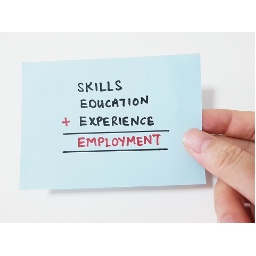 SKILLS
EDUCATION
+ EXPERIENCE
EMPLOYMENT